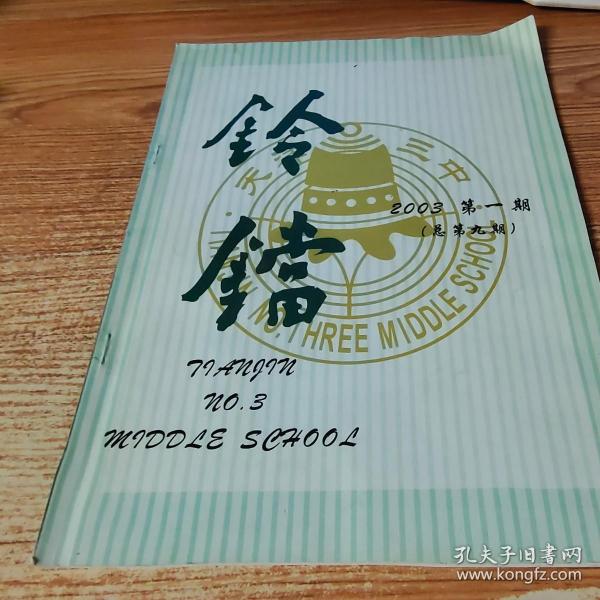 鈴
鐺
天 三中
NO. THREE MIDDLE SCHOOL
2003 第一期
(总第九期)
TIANJIN
NO.3
MIDDLE SCHOOL
孔夫子旧书网
www.kongfz.com